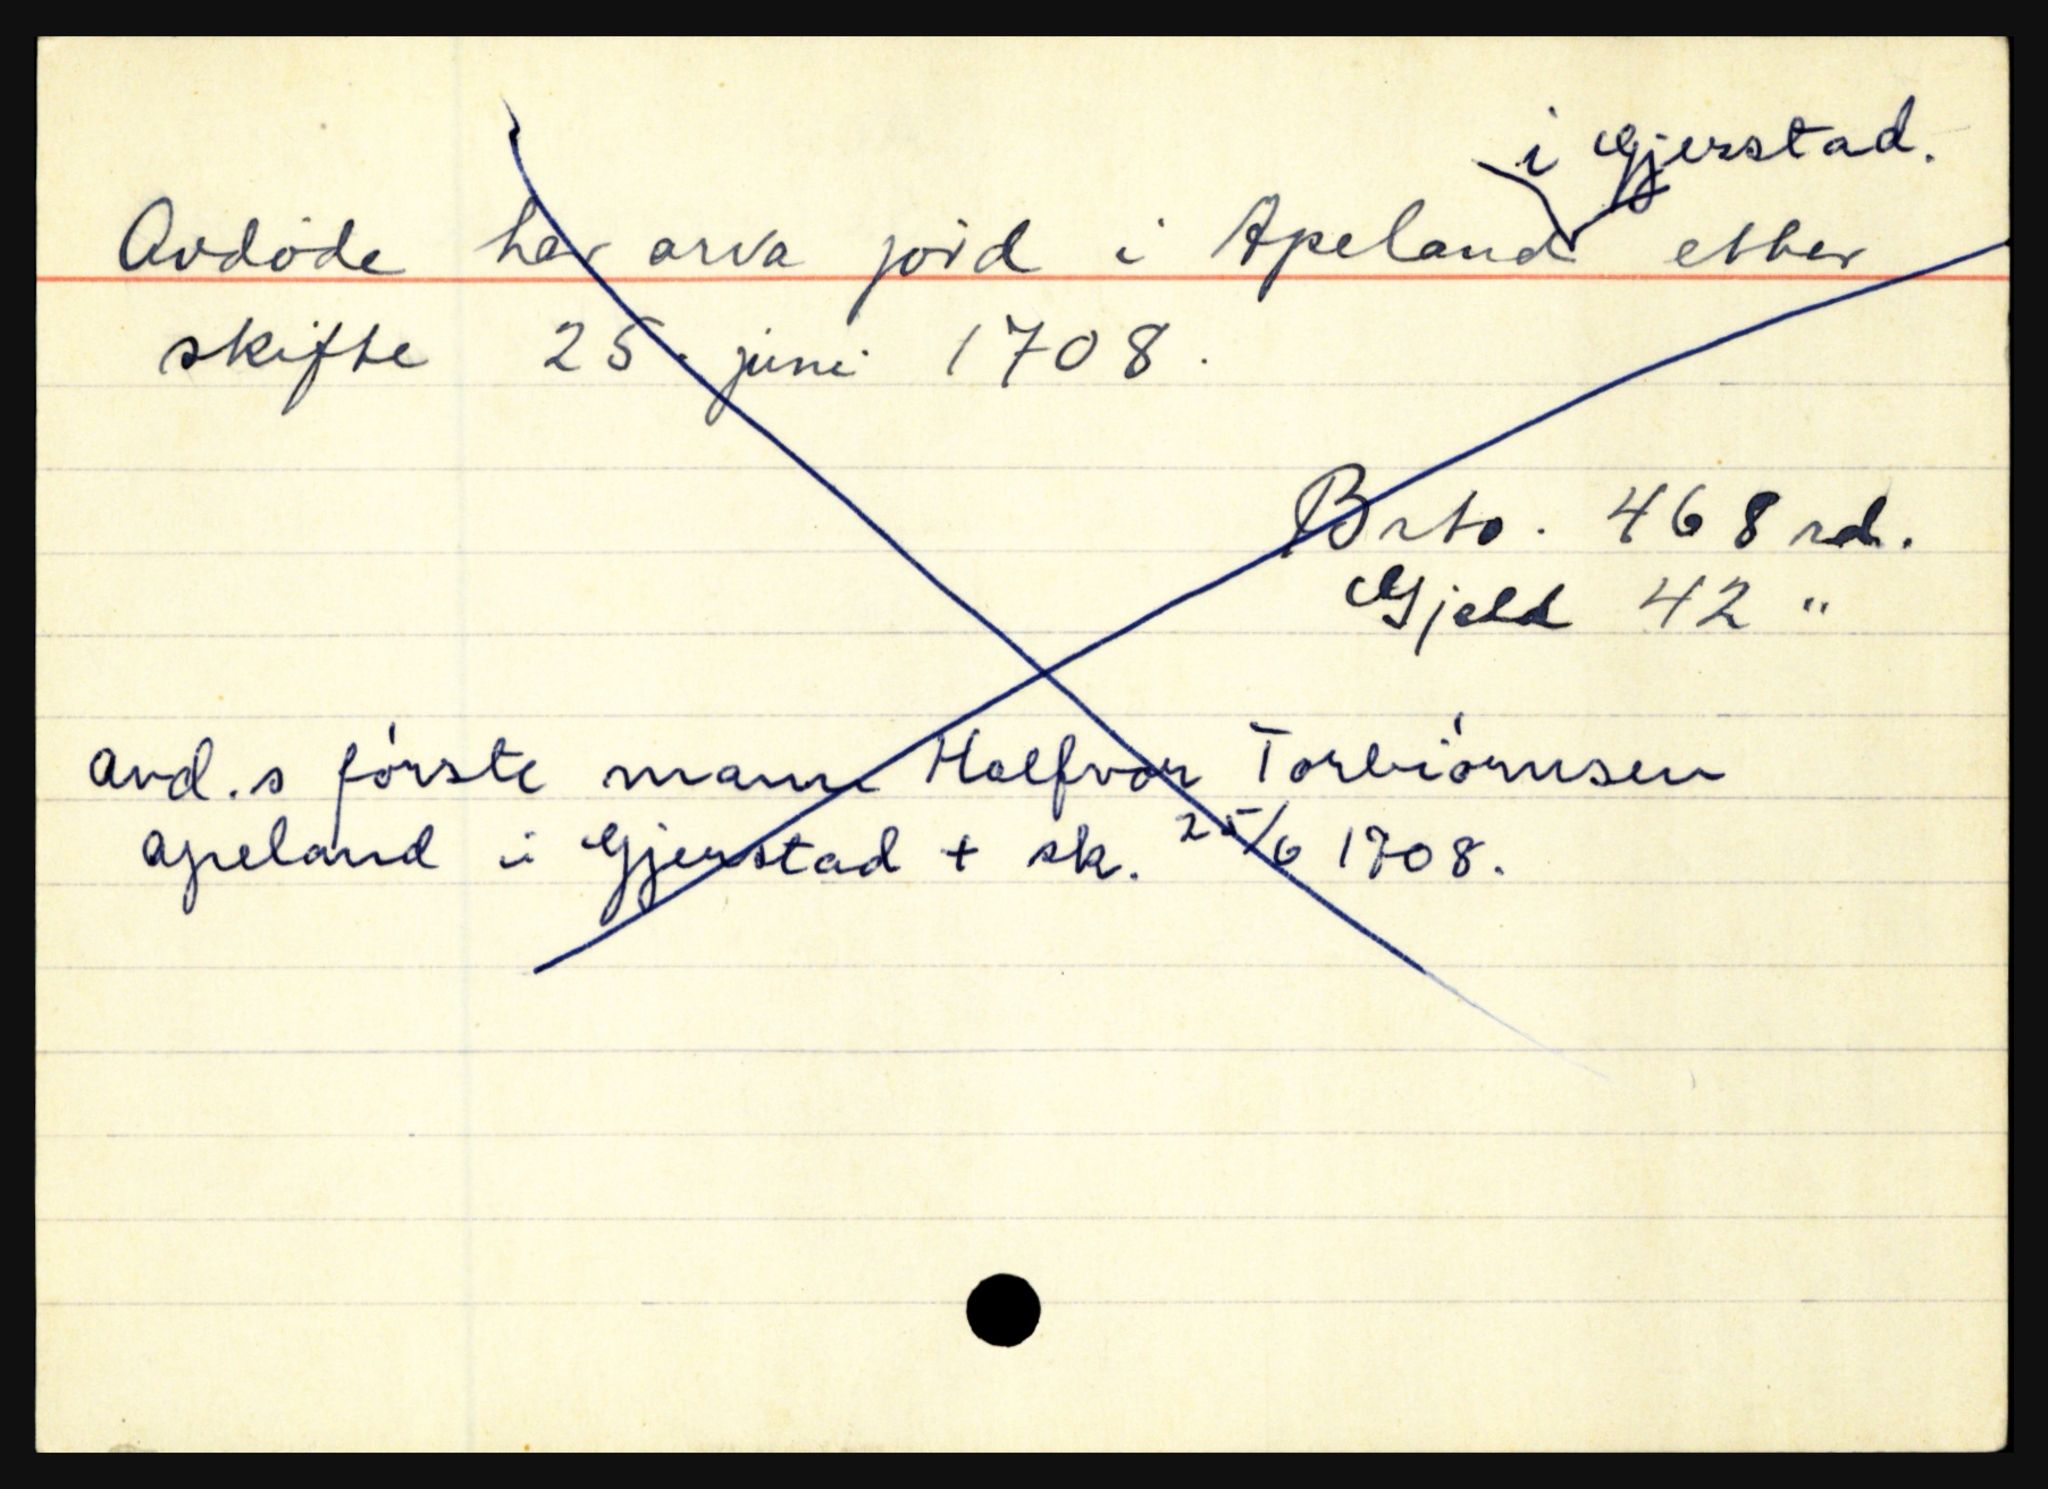 i Gjerstad.
Avdöde har arva jord i Apeland etter
skifte 25. juni 1708.
Brto. 468 rd.
Gjeld 42 "
avd.s förste mann Halfvor Torbiörnsen
Apeland i Gjerstad + sk. 25/6 1708.